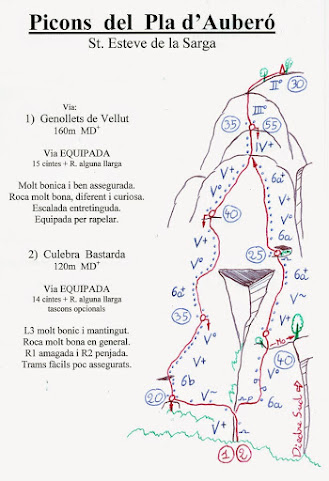 Picons del Pla d'Auberó
St. Esteve de la Sarga
Via:
1) Genollets de Vellut
160m MD+
Via EQUIPADA
15 cintes + R. alguna llarga
Molt bonica i ben assegurada.
Roca molt bona, diferent i curiosa.
Escalada entretinguda.
Equipada per rapelar.
2) Culebra Bastarda
120m MD+
Via EQUIPADA
14 cintes + R. alguna llarga
tascons opcionals
L3 molt bonic i mantingut.
Roca molt bona en general.
R1 amagada i R2 penjada.
Trams fàcils poc assegurats.
IIº
30
IIIº
35
55
IV+
V+
6a+
40
Vº
V+
6a
Vº
25
V+
6a+
Vº
V~
V+
35
Vº
Vº
Mo
V+
40
6b
Vº
20
6a
V+
1
2
Diedre Sud